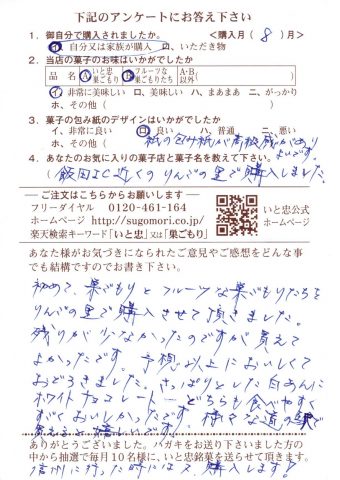 下記のアンケートにお答え下さい
1. 御自分で購入されましたか。 <購入月( 8 )月>
イ、自分又は家族が購入 ロ、いただき物
2. 当店の菓子のお味はいかがでしたか
品 名 Ⓐいと忠巣ごもり Ⓑフルーツな巣ごもりたち A・B以外( )
イ、非常に美味しい ロ、美味しい ハ、まあまあ ニ、がっかり
ホ、その他( )
3. 菓子の包み紙のデザインはいかがですか
イ、非常に良い ロ、良い ハ、普通 ニ、悪い
ホ、その他( 紙の包み紙が高級感がありよいです。)
4. あなたのお気に入りの菓子店と菓子名を教えて下さい。
(飯田IC近くのりんごの里で購入しました。
― ご注文はこちらからお願いします ―
フリーダイヤル 0120-461-164
ホームページ http://sugomori.co.jp/
楽天検索キーワード「いと忠」又は「巣ごもり」
いと忠公式
ホームページ
あなた様がお気づきになられたご意見やご感想をどんな事
でも結構ですのでお書き下さい。
初めて、巣ごもりとフルーツな巣ごもりたちを
りんごの里で購入させて頂きました。
残りが少なかったのですが買えて
よかったです。予想以上においしくて
おどろきました。さっぱりとした白あんに
ホワイトチョコレート…どちらも食べやすく
すごくおいしかったです。様々な道の駅で
買えると嬉しいです。
ありがとうございました。ハガキをお送り下さいました方の
中から抽選で毎月10名様に、いと忠銘菓を送らせて頂きます。
信州に行った時には又、購入します!